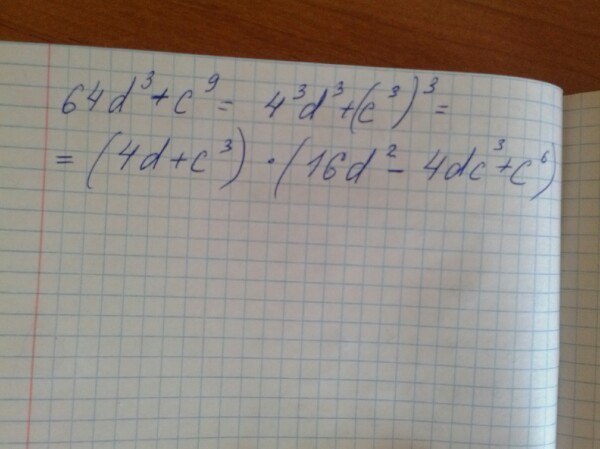 64d³+c⁹= 4³d³+(c³)³=
=(4d+c³)·(16d²-4dc³+c⁶)